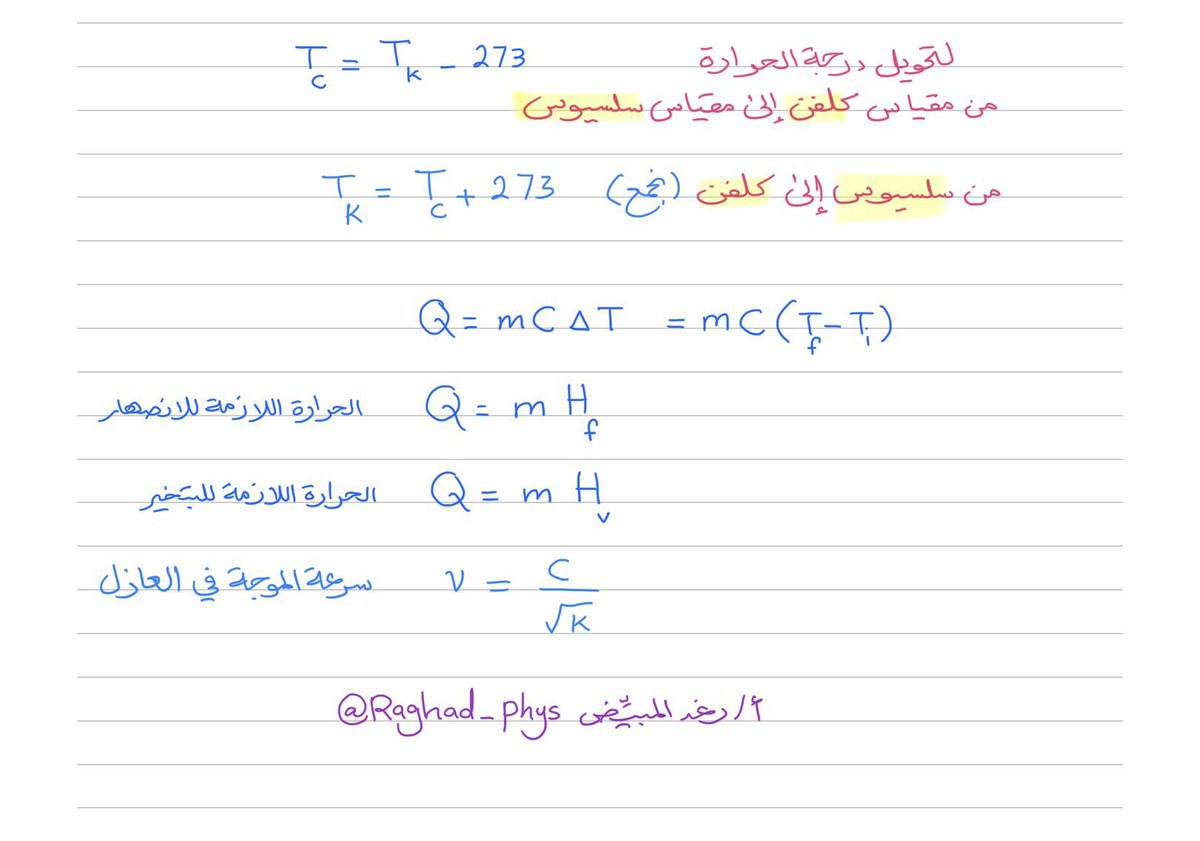 لتحويل درجة الحرارة T_C = T_K - 273
من مقياس كلفن إلى مقياس سلسيوس
من سلسيوس إلى كلفن (نجمع) T_K = T_C + 273
Q = mC∆T = mC(T_f - T_i)
الحرارة اللازمة للانصهار Q = m H_f
الحرارة اللازمة للتبخير Q = m H_v
سرعة الموجة في العازل v = C / √K
أ/رغد المبيّض @Raghad_phys